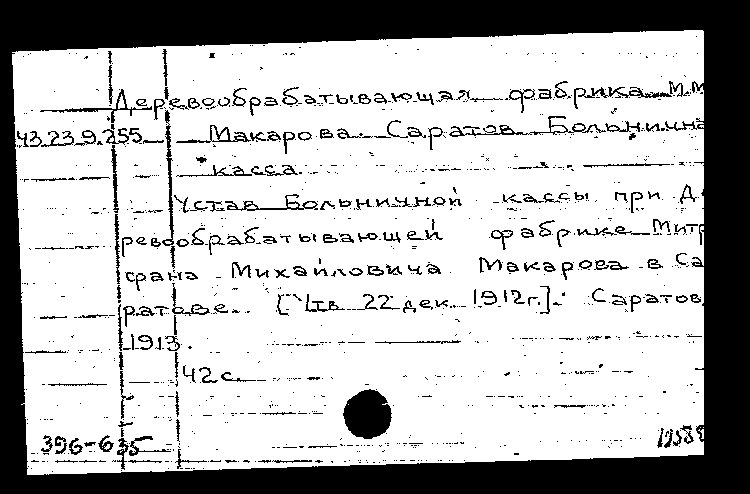 Деревообрабатывающая фабрика М.М
43.23.9.255 Макарова. Саратов. Больнична
касса.
Устав Больничной кассы при Де
ревообрабатывающей фабрике Митр
фана Михайловича Макарова в Са
ратове. [Утв 22 дек. 1912г.]. Саратов,
1913.
42 с.
396-635